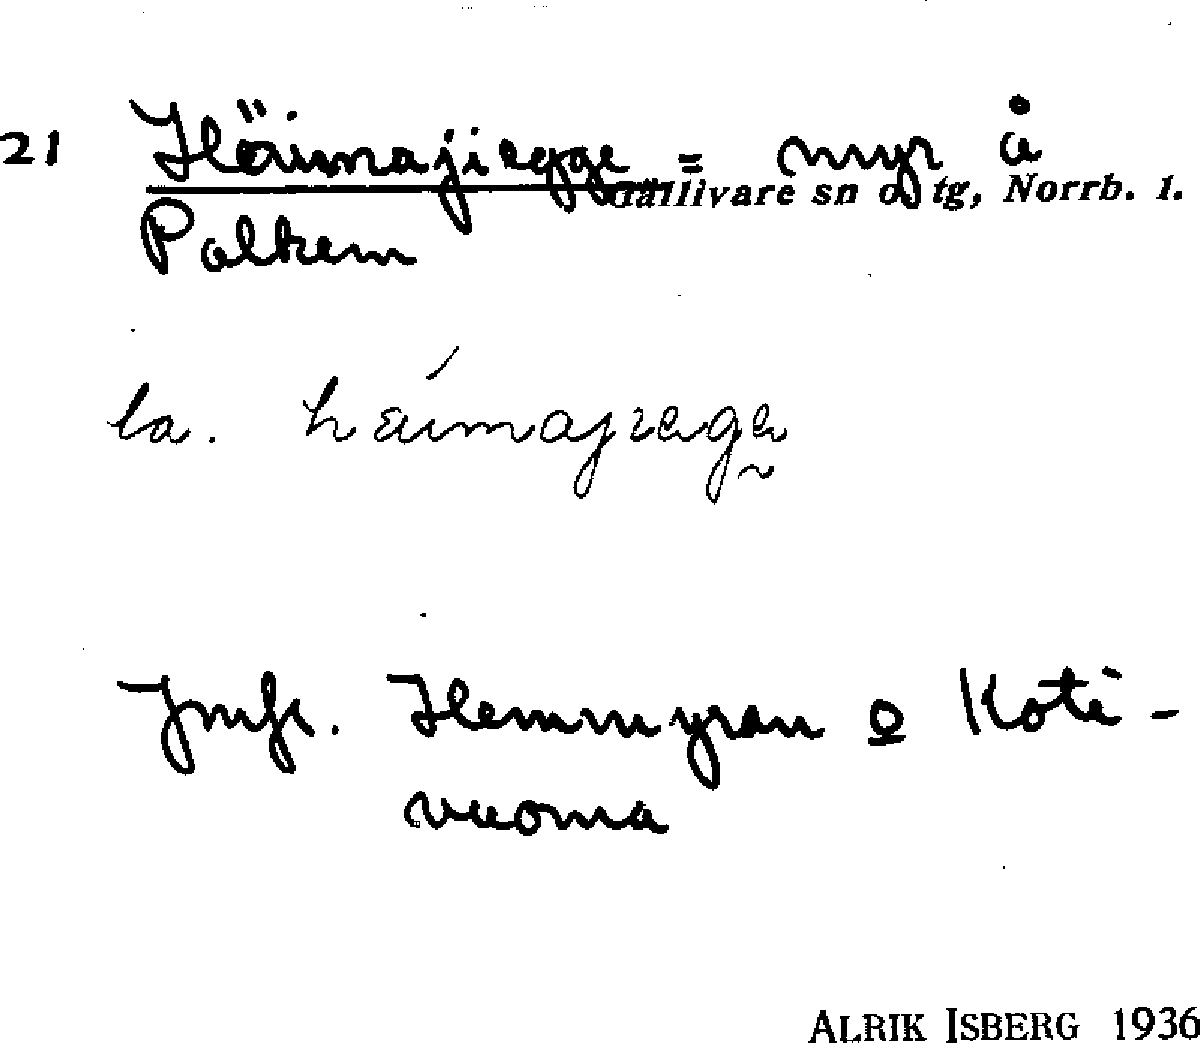 21 Häimajiegge = myr å
Gällivare sn o. tg, Norrb. l.
Polkem
la. háimajiegge
Jmfr. Hemmyran o Koti-
vuoma
ALRIK ISBERG 1936